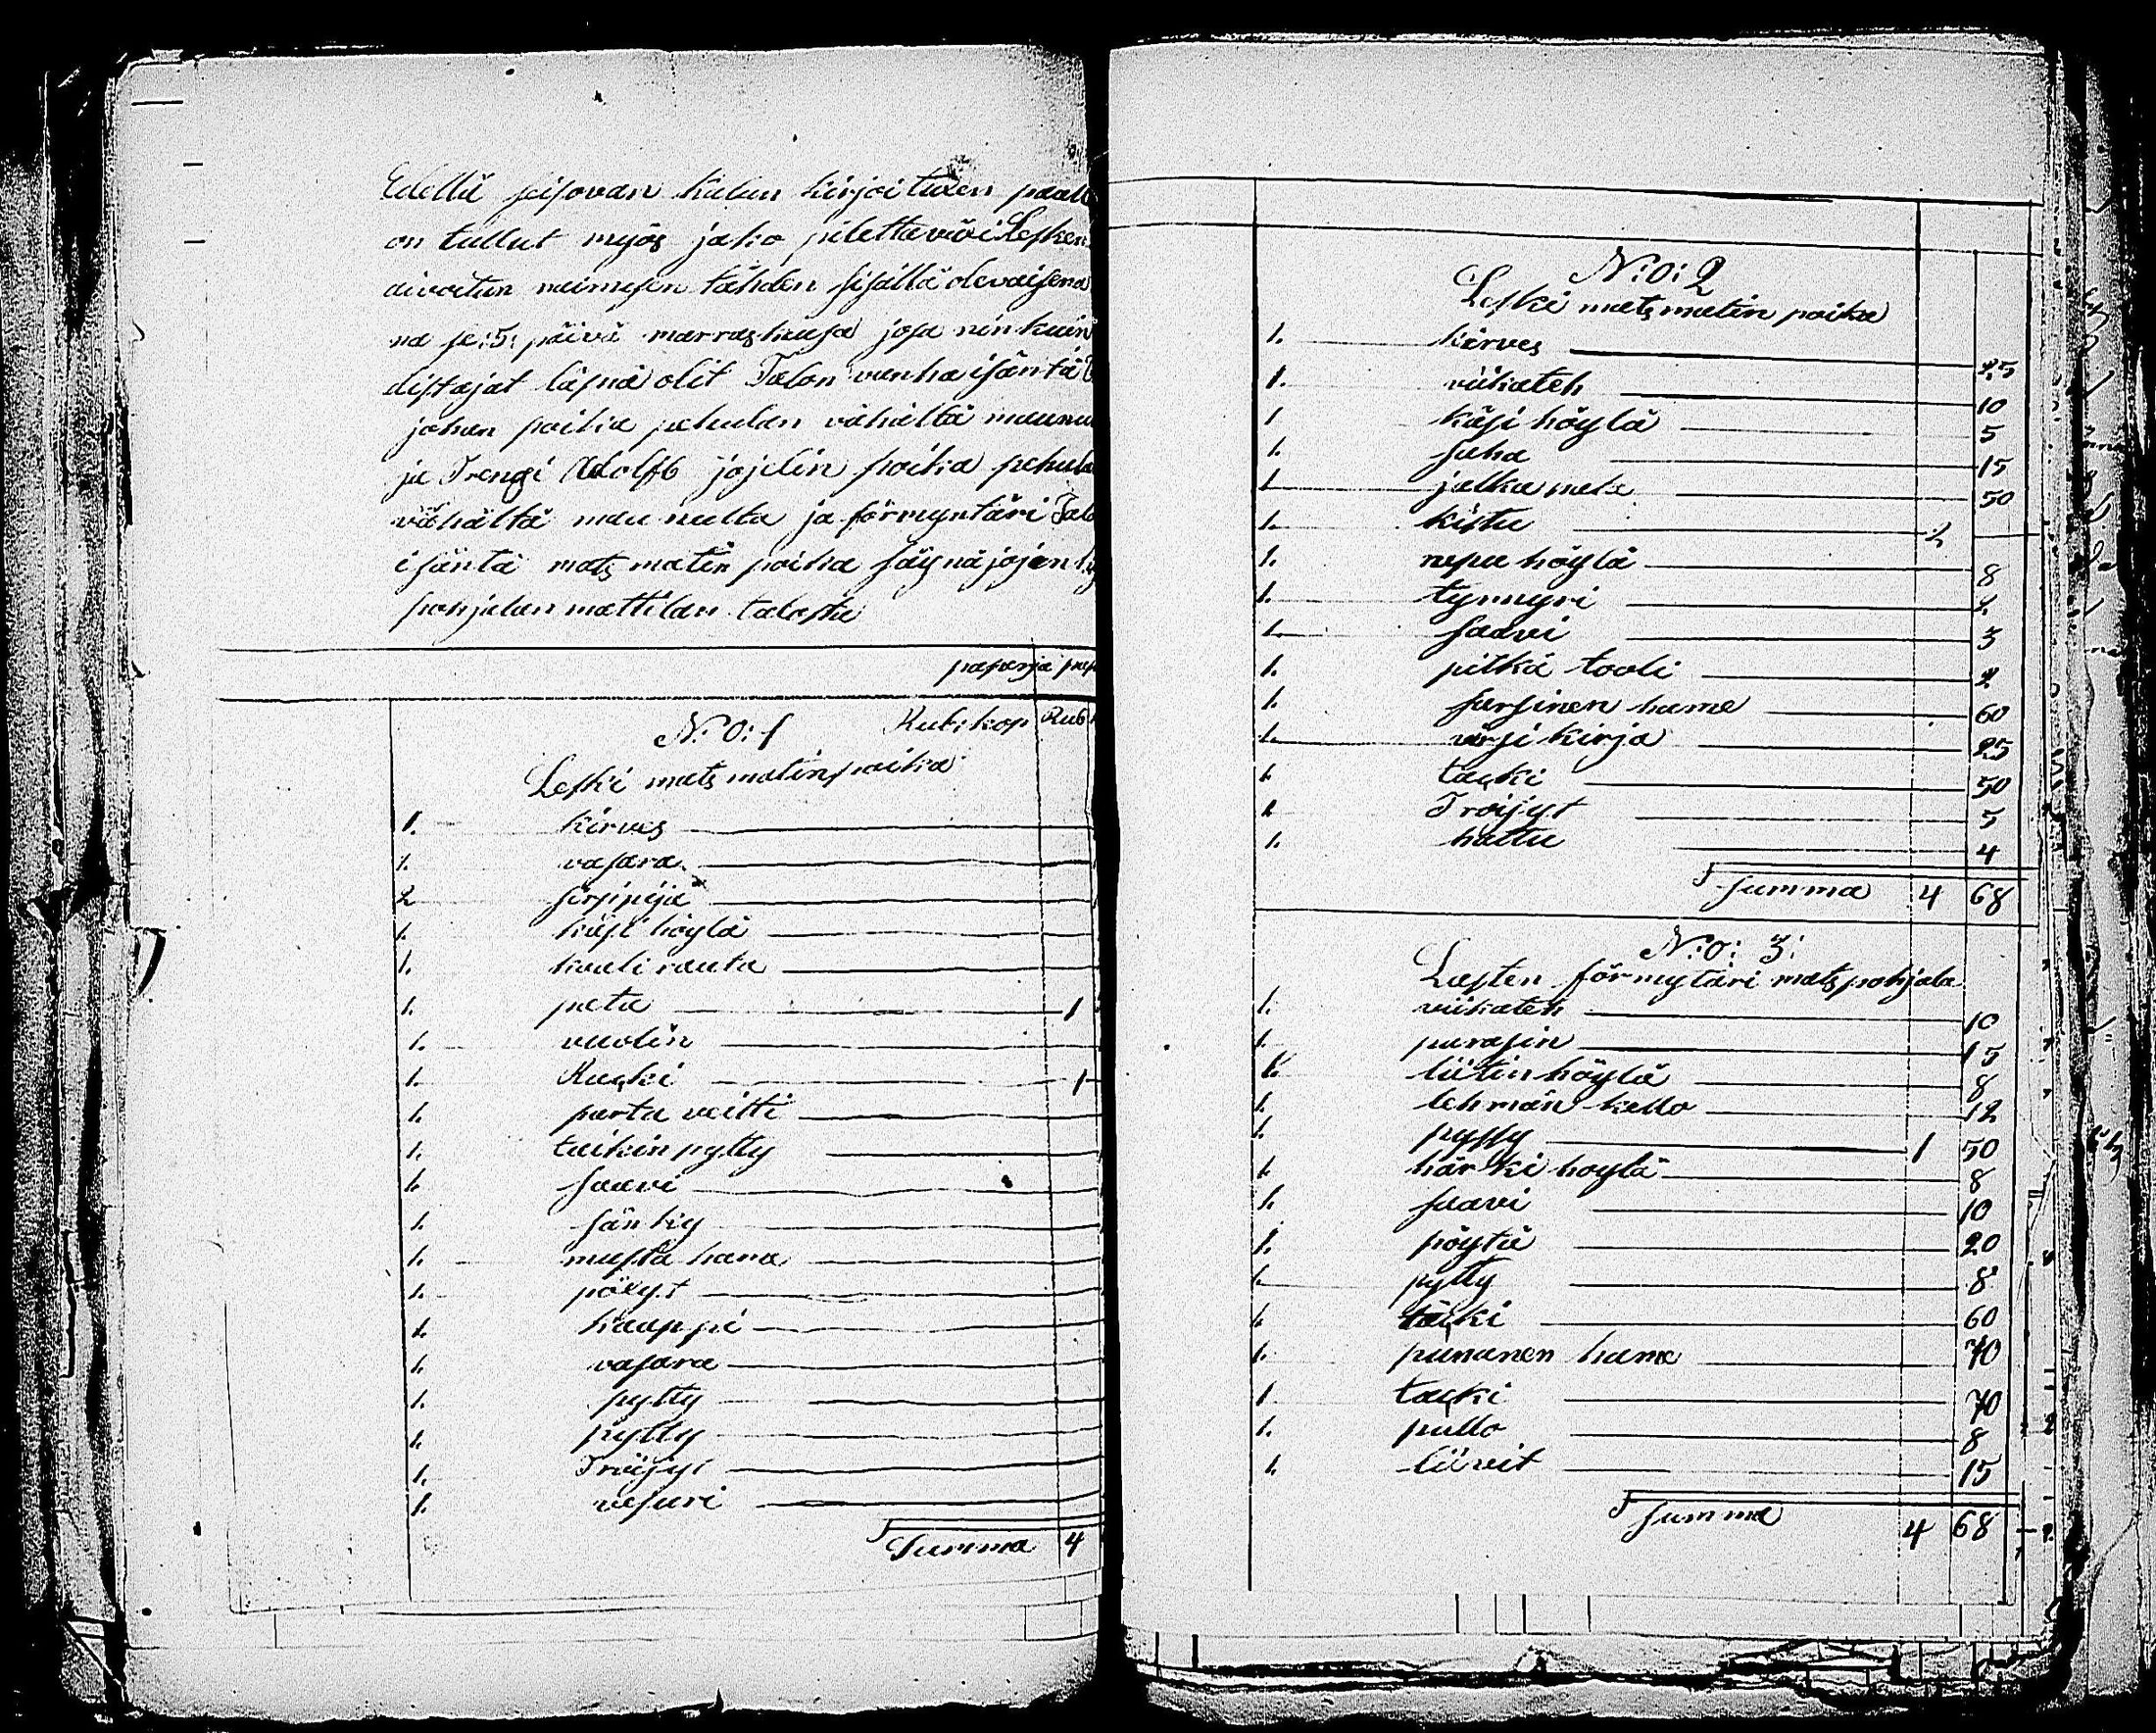 Edellä seisovan kalun kirjoituxen pääll
on tullut myös jako pitettäväxi Lesken
aivoitun naimisen tähden sisällä olevaisena
na se: 5: päivä marraskuusa josa ninkuin
distajat läsnä olit Talon vanha isäntä
johan poika pakulan vähältä maunu
ja Trengi Adolf jojelin poika pakula
vähältä maunulta ja förmyntäri Talo
isäntä mats matin poika säynäjojan
pohjalan mattilan talosta
paparja pap
N:o: 1 Rub: kop Rub
Leski mats matin poika
1. kirves
1. vasara
2 sirpijä
1. käsi höylä
1. kaali rauta
1. pata 1
1. vuolin
1. Kucki 1
1. parta veitti
1. taikin pytty
1. saavi
1. sänky
1. musta hama
1. pölyst
1. kaappi
1. vasara
1. pytty
1. pytty
1. Tröijyt
1. vesuri
Summa 4
N:o: 2
Leski mats matin poika
1. kärves 25
1. viikateh 10
1 käsi höylä 5
1. saha 15
1 jalka pata 50
1. kistu 2
1. napa höylä 8
1. tynnyri 2
1. saavi 3
1. pitkä tooli 2
1. sarsinen hame 60
1. virsi kirja 25
1. täcki 50
1 Tröijyt 5
1. hattu 4
Summa 4 68
N:o: 3:
Lasten förmytäri mats pohjala
1. viikateh 10
1. purasin 15
1. liitin höylä 8
1. lehmän kello 12
1. pyssy 1 50
1. härki höylä 8
1. saavi 10
1. pöytä 20
1. pytty 8
1. täcki 60
1. punanen hame 70
1. täcki 70
1. pullo 8
1. liivit 15
Summa 4 68